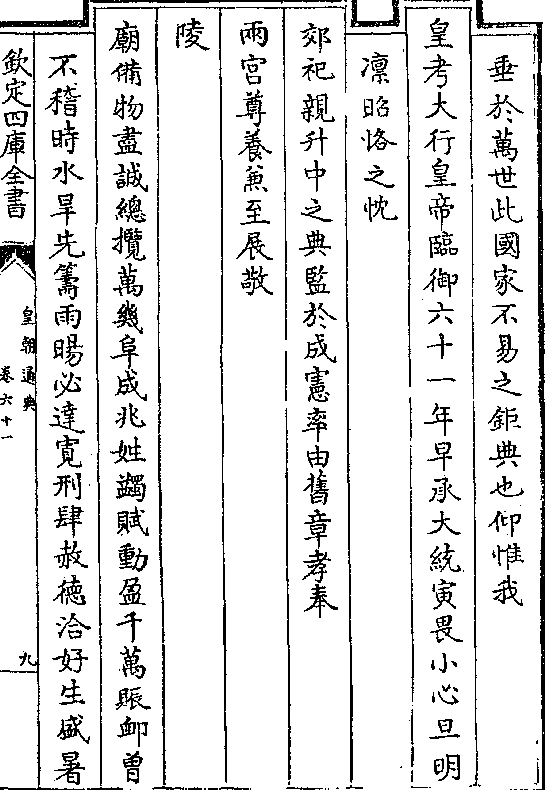 垂於萬世此國家不易之鉅典也仰惟我
皇考大行皇帝臨御六十一年早承大統寅畏小心旦明
凜昭恪之忱
郊祀親升中之典監於成憲率由舊章孝奉
兩宮尊養兼至展敬
陵
廟備物盡誠總攬萬幾阜成兆姓蠲賦動盈千萬賑卹曾
不稽時水旱先籌雨暘必達寬刑肆赦德洽好生盛暑
欽定四庫全書
皇朝通典
卷六十一
九